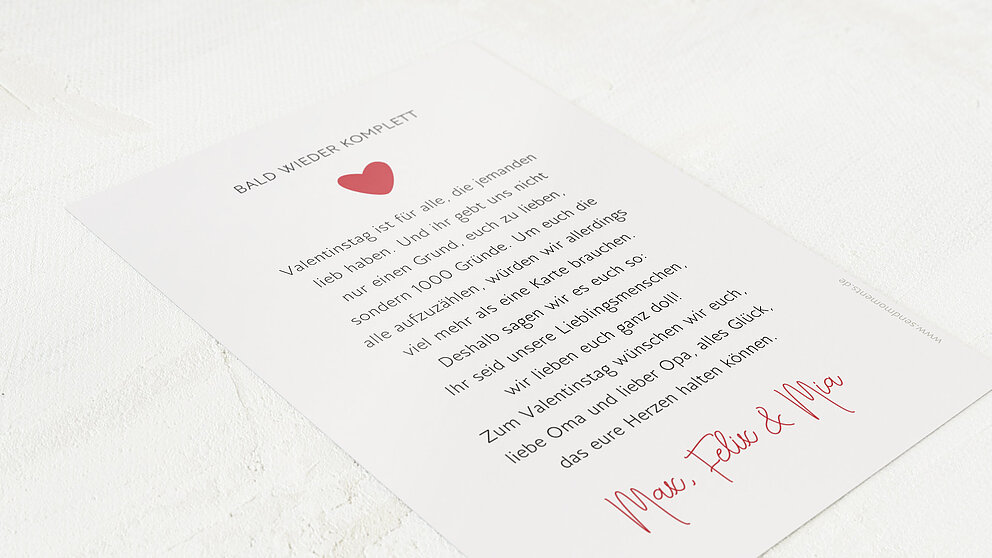 BALD WIEDER KOMPLETT
Valentinstag ist für alle, die jemanden
lieb haben. Und ihr gebt uns nicht
nur einen Grund, euch zu lieben,
sondern 1000 Gründe. Um euch die
alle aufzuzählen, würden wir allerdings
viel mehr als eine Karte brauchen.
Deshalb sagen wir es euch so:
Ihr seid unsere Lieblingsmenschen,
wir lieben euch ganz doll!
Zum Valentinstag wünschen wir euch,
liebe Oma und lieber Opa, alles Glück,
das eure Herzen halten können.
Max, Felix & Mia
www.sendmoments.de